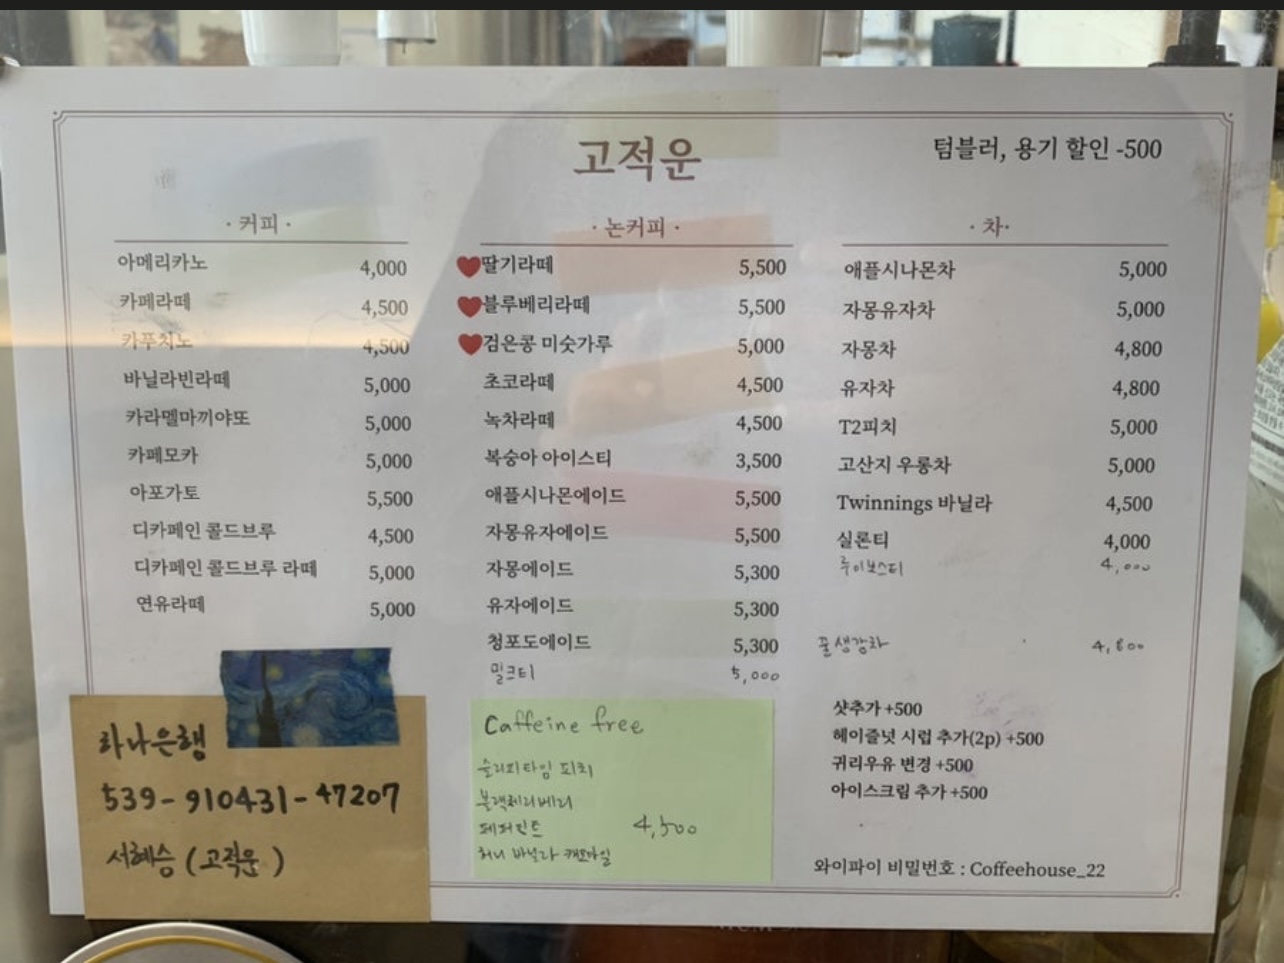 고적운
텀블러, 용기 할인 -500
· 커피 ·
아메리카노 4,000
카페라떼 4,500
카푸치노 4,500
바닐라빈라떼 5,000
카라멜마끼야또 5,000
카페모카 5,000
아포가토 5,500
디카페인 콜드브루 4,500
디카페인 콜드브루 라떼 5,000
연유라떼 5,000
· 논커피 ·
딸기라떼 5,500
블루베리라떼 5,500
검은콩 미숫가루 5,000
초코라떼 4,500
녹차라떼 4,500
복숭아 아이스티 3,500
애플시나몬에이드 5,500
자몽유자에이드 5,500
자몽에이드 5,300
유자에이드 5,300
청포도에이드 5,300
밀크티 5,000
· 차·
애플시나몬차 5,000
자몽유자차 5,000
자몽차 4,800
유자차 4,800
T2피치 5,000
고산지 우롱차 5,000
Twinnings 바닐라 4,500
실론티 4,000
루이보스티 4,000
꿀생강차 4,800
샷추가 +500
헤이즐넛 시럽 추가(2p) +500
귀리우유 변경 +500
아이스크림 추가 +500
와이파이 비밀번호 : Coffeehouse_22
하나은행
539-910431-47207
서혜승 (고적운)
Caffeine free
슬리피타임 피치
블랙체리베리
페퍼민트 4,500
허니 바닐라 캐모마일